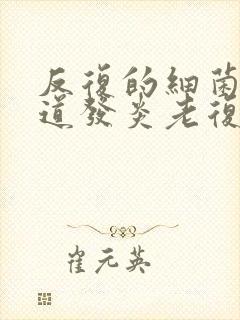 反復的細菌
道發炎老復
崔元英